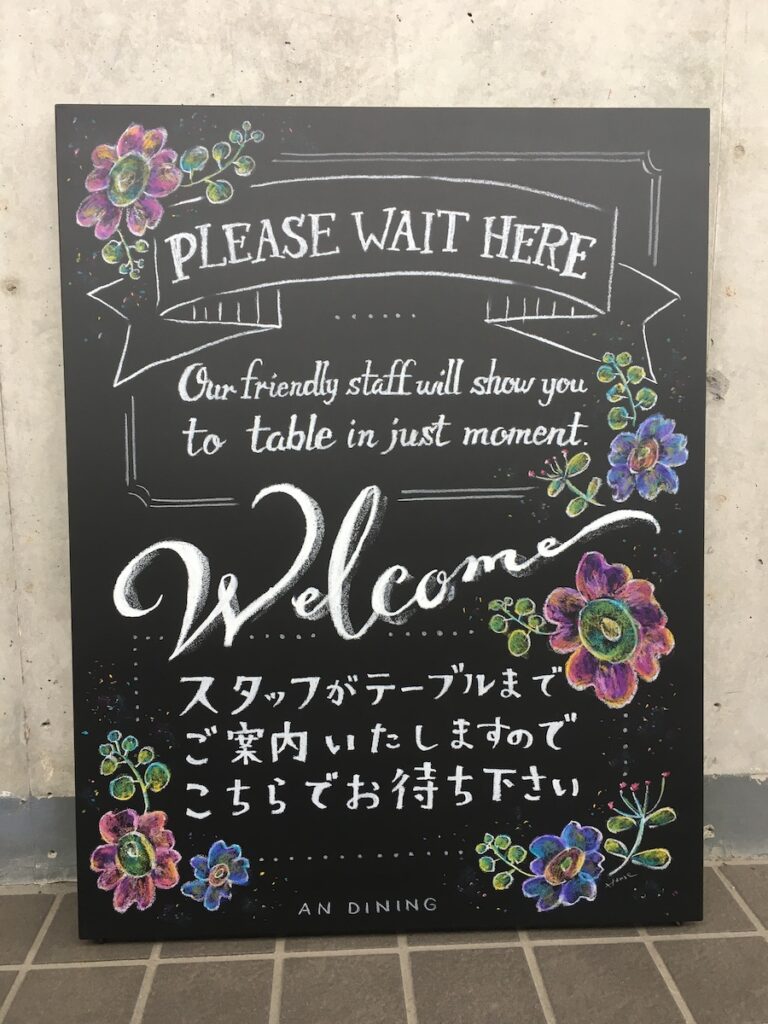 PLEASE WAIT HERE
Our friendly staff will show you
to table in just moment.
Welcome
スタッフがテーブルまで
ご案内いたしますので
こちらでお待ち下さい
AN DINING